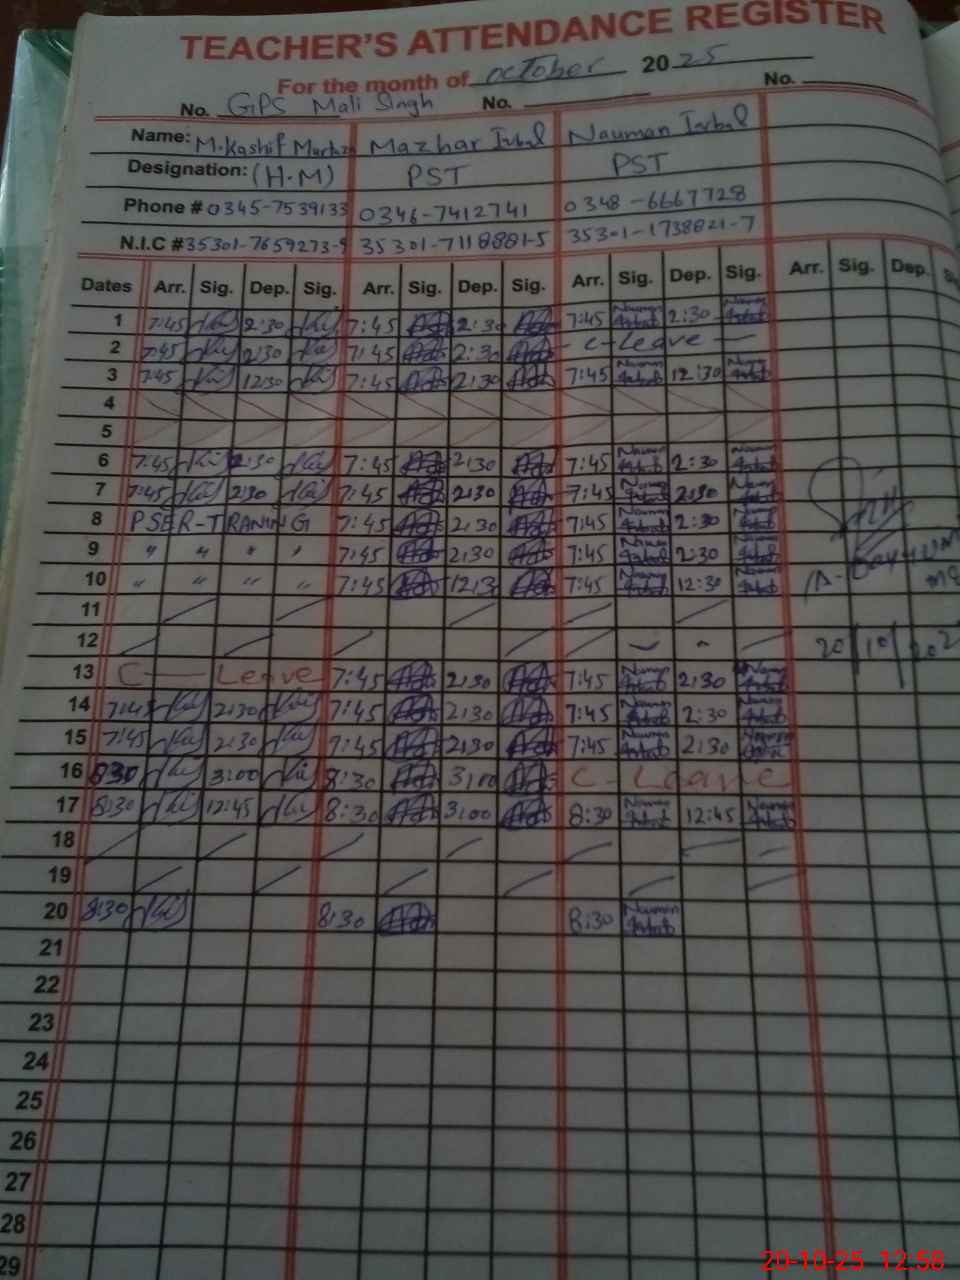 TEACHER'S ATTENDANCE REGISTER
For the month of October 2025
No. GPS Mali Singh No. No.
Name: M.Kashif Murtaza Mazhar Iqbal Nauman Iqbal
Designation: (H.M) PST PST
Phone # 0345-7539133 0346-7412741 0348-6667728
N.I.C # 35301-7659273-9 35301-7118881-5 35301-1738821-7
Dates Arr. Sig. Dep. Sig. Arr. Sig. Dep. Sig. Arr. Sig. Dep. Sig. Arr. Sig. Dep.
1 7:45 2:30 7:45 2:30 7:45 Nauman Iqbal 2:30 Nauman Iqbal
2 7:45 2:30 7:45 2:30 - C-Leave -
3 7:45 12:30 7:45 2:30 7:45 Nauman Iqbal 12:30 Nauman Iqbal
4
5
6 7:45 2:30 7:45 2:30 7:45 Nauman Iqbal 2:30 Nauman Iqbal
7 7:45 2:30 7:45 2:30 7:45 Nauman Iqbal 2:30 Nauman Iqbal
8 PSER-TRANING 7:45 2:30 7:45 Nauman Iqbal 2:30 Nauman Iqbal
9 " " " " 7:45 2:30 7:45 Nauman Iqbal 2:30 Nauman Iqbal
10 " " " " 7:45 12:3 7:45 Nauman Iqbal 12:30 Nauman Iqbal
11
12 20/10/202
13 C - Leave 7:45 2:30 7:45 Nauman Iqbal 2:30 Nauman Iqbal
14 7:45 2:30 7:45 2:30 7:45 Nauman Iqbal 2:30 Nauman Iqbal
15 7:45 2:30 7:45 2:30 7:45 Nauman Iqbal 2:30 Nauman Iqbal
16 8:30 3:00 8:30 3:00 C - Leave
17 8:30 12:45 8:30 3:00 8:30 Nauman Iqbal 12:45 Nauman Iqbal
18
19
20 8:30 8:30 8:30 Nauman Iqbal
21
22
23
24
25
26
27
28
29
20-10-25 12:58